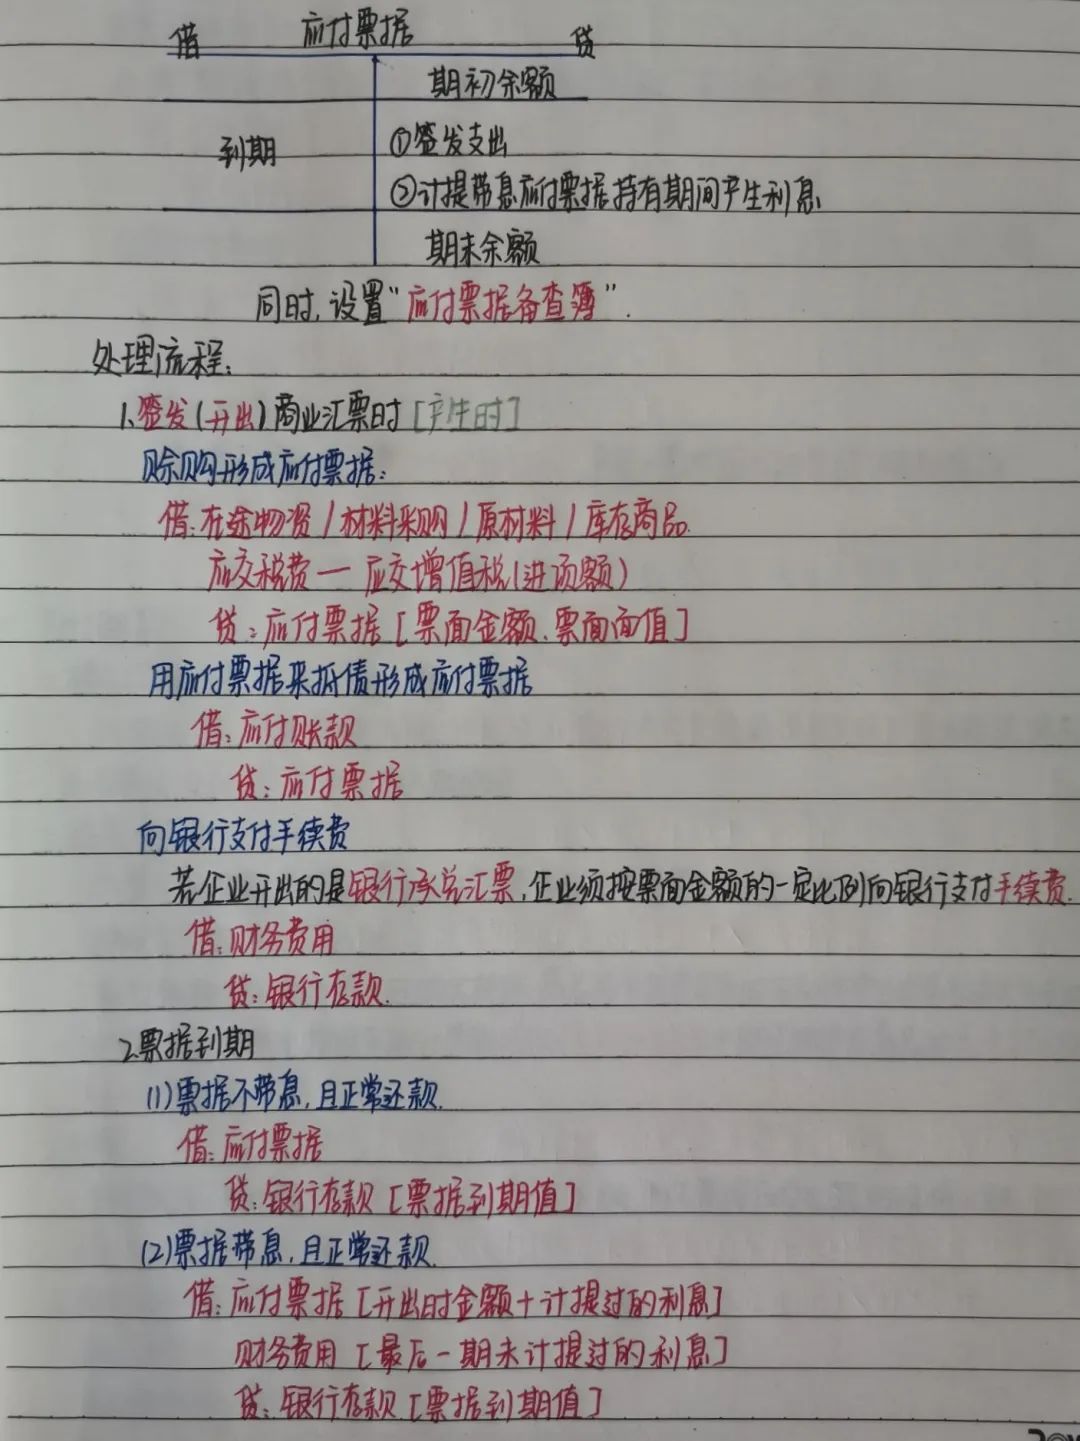 借 应付票据 贷
期初余额
到期 ①签发支出
②计提带息应付票据持有期间产生利息
期末余额
同时,设置“应付票据备查簿”.
处理流程:
1.签发(开出)商业汇票时[产生时]
赊购形成应付票据:
借:在途物资/材料采购/原材料/库存商品
应交税费—应交增值税(进项额)
贷:应付票据[票面金额、票面面值]
用应付票据来抵债形成应付票据
借:应付账款
贷:应付票据
向银行支付手续费
若企业开出的是银行承兑汇票,企业须按票面金额的一定比例向银行支付手续费.
借:财务费用
贷:银行存款.
2.票据到期
(1)票据不带息,且正常还款.
借:应付票据
贷:银行存款[票据到期值]
(2)票据带息,且正常还款.
借:应付票据[开出时金额+计提过的利息]
财务费用[最后一期未计提过的利息]
贷:银行存款[票据到期值]